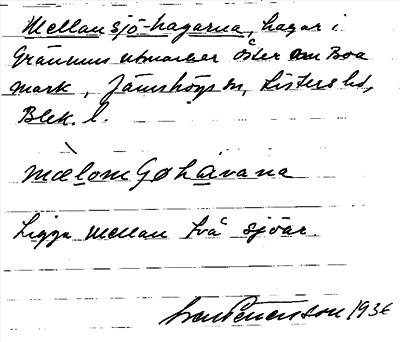 Mellansjö-hagarna, hagar i
Grännums utmarker öster om Boa
mark, Jämshögs sn, Listers hd,
Blek. l.
mælomGøhàvana
Ligga mellan två sjöar.
Petersson 1936